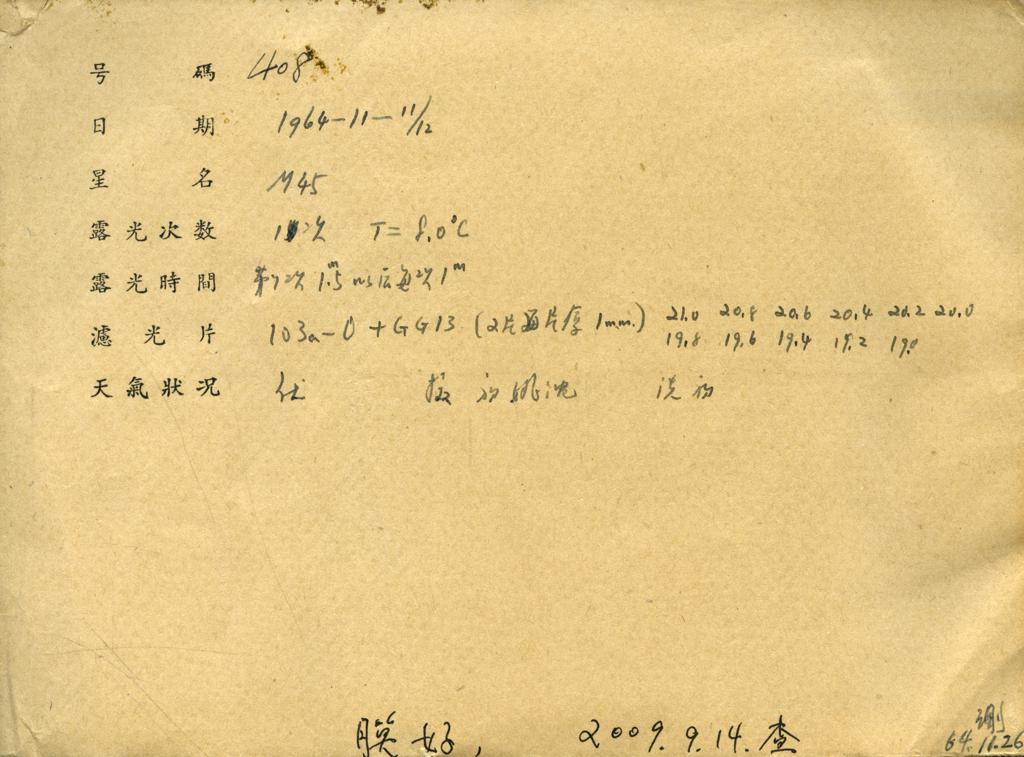 号碼 408
日期 1964-11-11/12
星名 M45
露光次数 11次 T=8.0°C
露光時間 第1次 1.5m 以后每次1m
濾光片 103a-O+GG13 (2片 片厚 1mm.) 21.0 20.8 20.6 20.4 20.2 20.0
19.8 19.6 19.4 19.2 19.0
天氣狀况 佳
膜好, 2009.9.14.查
64.11.26